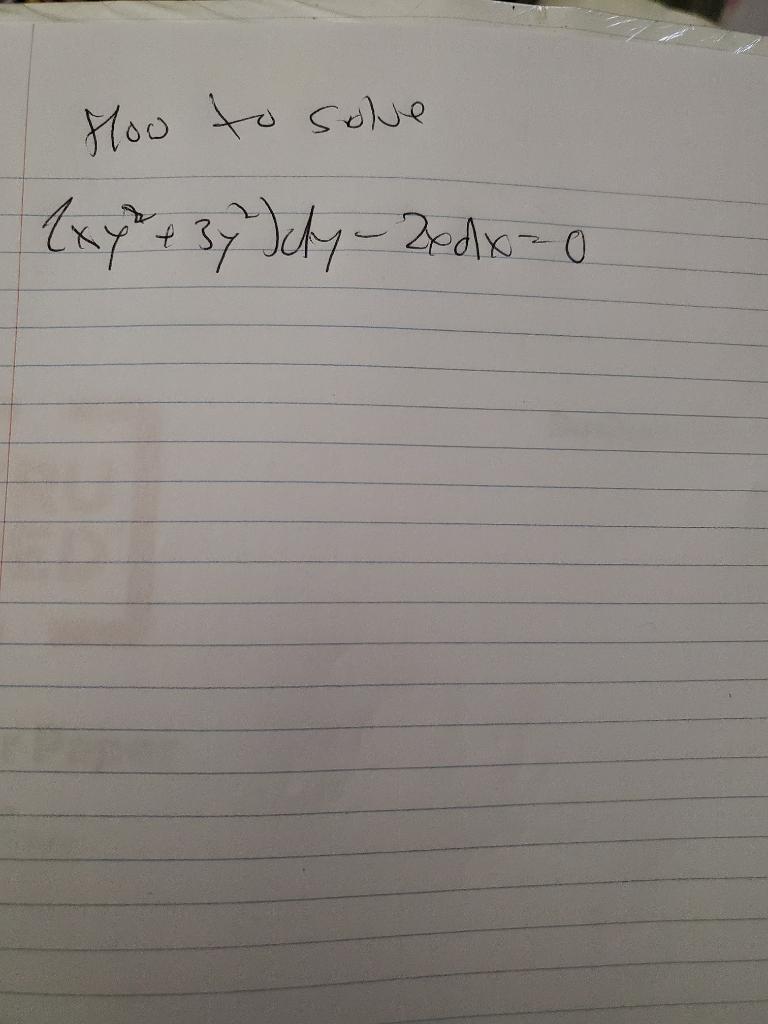 How to solve
(xy² + 3y²)dy - 2xdx = 0